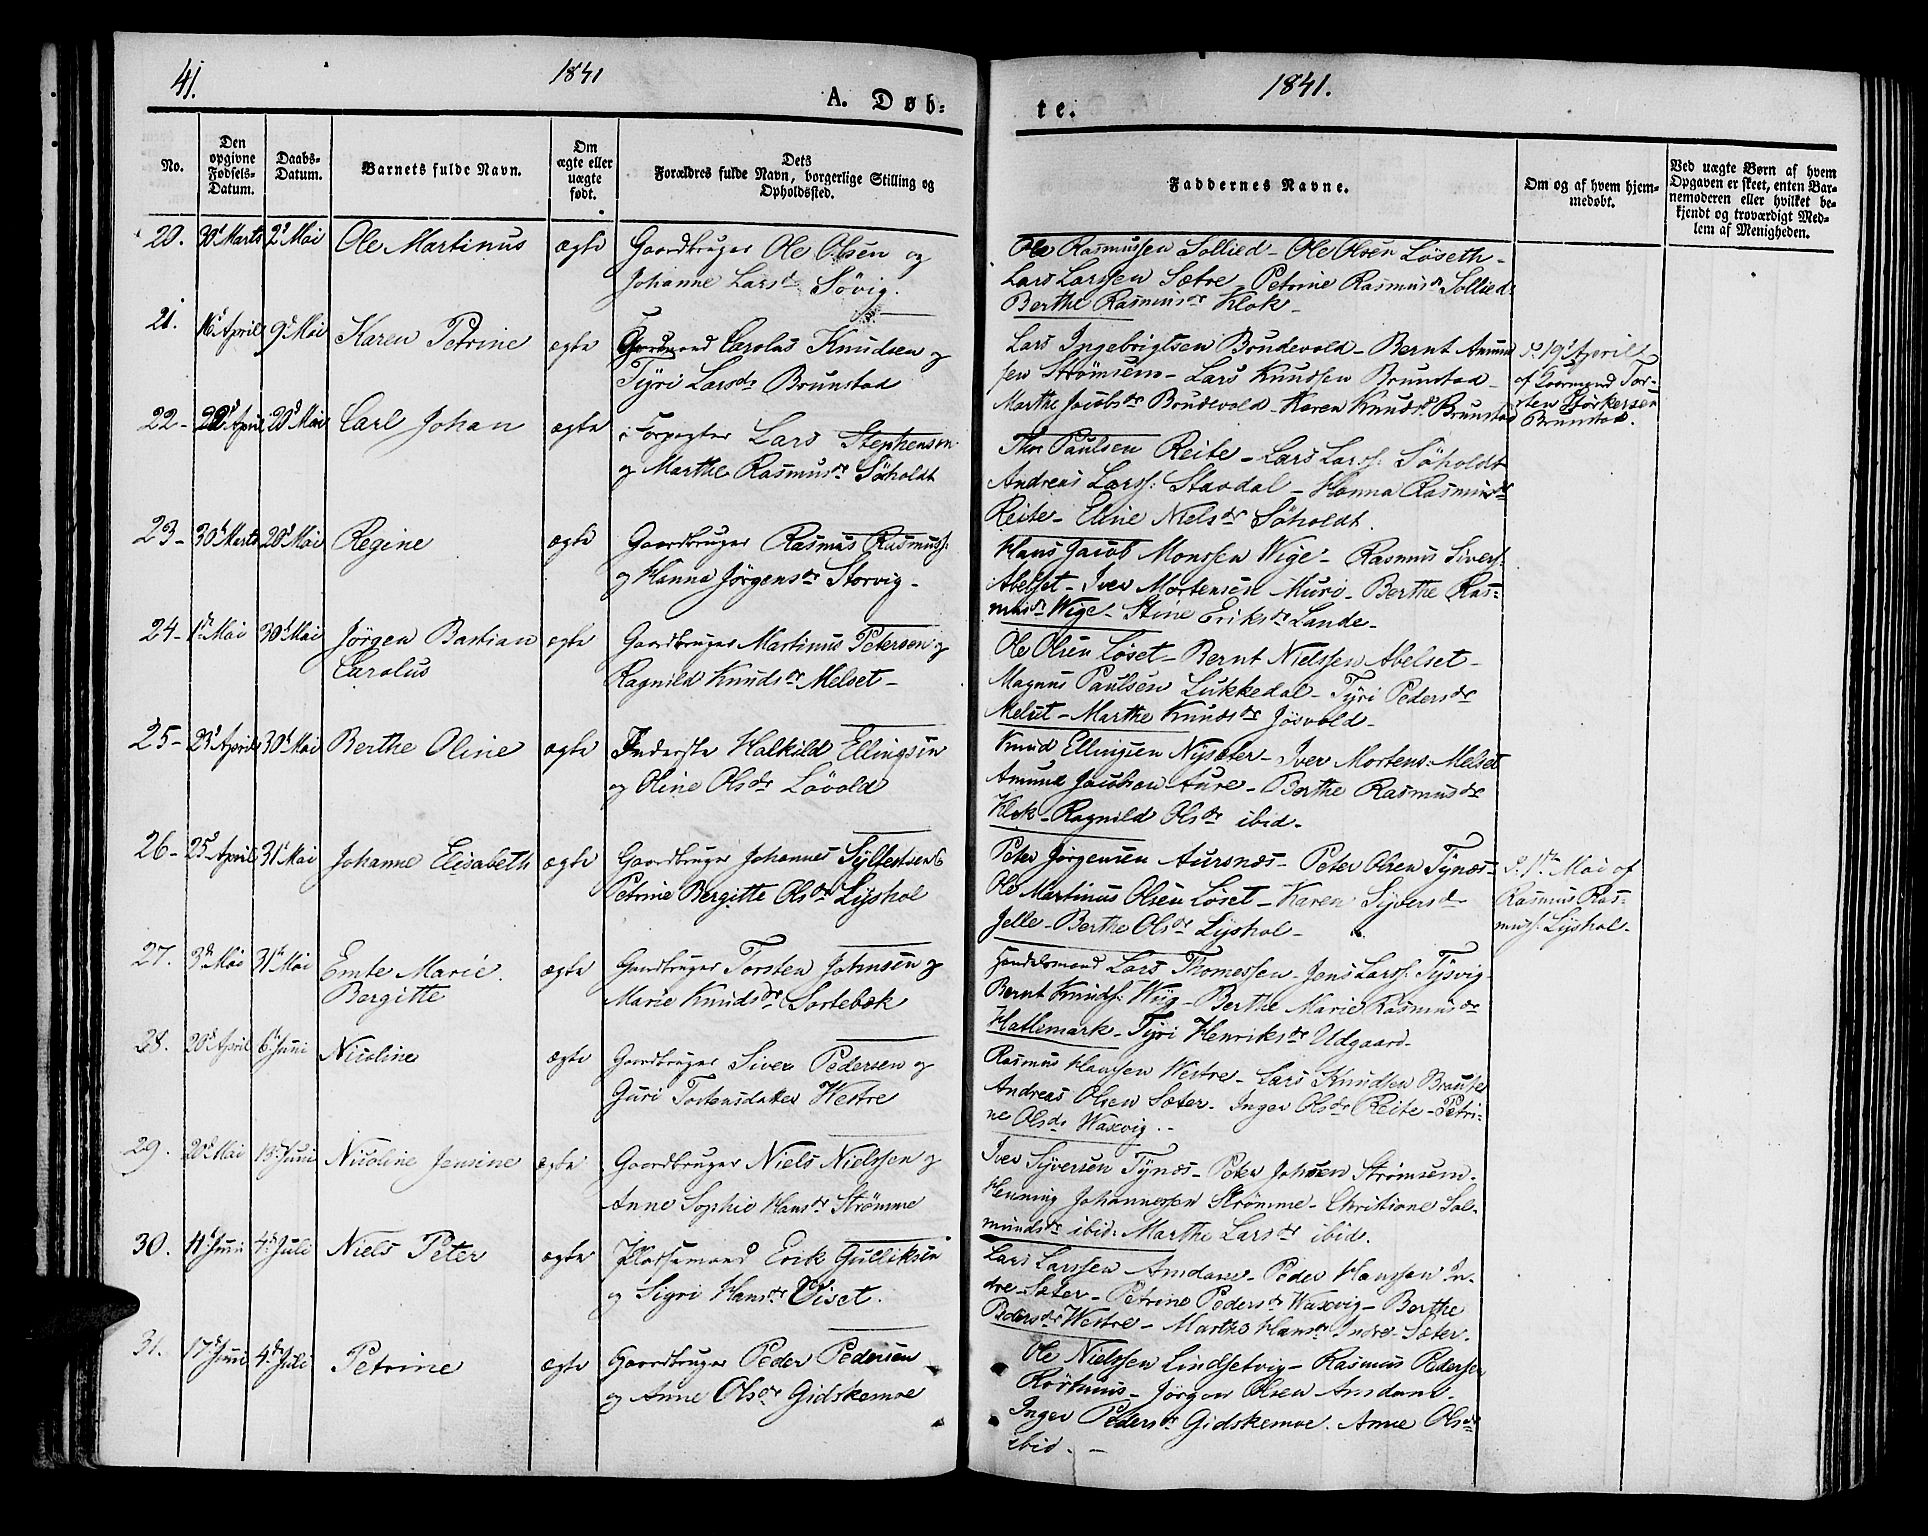 41.
1841
A. Døb=
No.
Den opgivne Fødsels-Datum.
Daabs-Datum.
Barnets fulde Navn.
Om ægte eller uægte født.
Dets Forældres fulde Navn, borgerlige Stilling og Opholdssted.
20. 30t Marts 2d Mai Ole Martinus ægte Gaardbruger Ole Olsen og
Johanne Larsdr Søvig.
21. 16d April 9d Mai Karen Petrine ægte Carolus Knudsen og
Tyri Larsdr Brunstad
22- April 20d Mai Carl Johan ægte Forpagter Lars Stephensen
og Marthe Rasmusdr Søholdt
23- 30t Marts 20d Mai Regine ægte Gaardbruger Rasmus Rasmuss:
og Hanna Jørgensdr Storvig-
24- 1t Mai 30t Mai Jørgen Bastian ægte Gaardbruger Martinus Petersen og
Carolus Ragnild Knudsdr Melset-
25- 23d April 30t Mai Berthe Oline ægte Inderste Halkild Ellingsen
og Oline Olsdr Løvold
26- 25d April 31t Mai Johanne Elisabeth ægte Gaardbruger Johannes Sylfestsen &
Petrine Bergitte Olsdr Lyshol
27. 3d Mai 31t Mai Emte Marie ægte Gaardbruger Torsten Johnsen og
Bergitte Marie Knudsdr Sortebæk
28. 20d April 6t Juni Nicoline ægte Gaardbruger Siver Pedersen og
Guri Tostensdatter Westre
29. 20d Mai 13d Juni Nicoline Jensine ægte Gaardbruger Niels Nielssen og
Anne Sophie Hansdr Strømme
30. 11t Juni 4d Juli Niels Peter ægte Pladsemand Erik Gulliksen
og Sigri Hansdr Viset.
31. 17d Juni 4d Juli Petrine ægte Gaardbruger Peder Pedersen
og Anne Olsdr Gidskemoe
1841.
te.
Faddernes Navne.
Om og af hvem hjemmedøbt.
Ved uægte Børn af hvem Opgaven er skeet, enten Barnemoderen eller hvilket bekjendt og troværdigt Medlem af Menigheden.
Ole Rasmussen Sollied- Ole Olsen Løseth-
Lars Larssen Sætre- Petrine Rasmusdr Sollied-
Berthe Rasmusdr Klok-
Lars Ingebrigtsen Brudevold- Bernt Amund
sen Strømsem- Lars Knudsen Brunstad-
Marthe Jacobsdr Brudevold- Karen Knudsdr Brunstad
D. 19d April
af Torsten
Brunstad.
Thor Paulsen Reite- Lars Larss: Søholdt
Andreas Larss: Stavdal- Hanna Rasmusdr
Reite- Eline Nielsdr Søholdt.
Hans Jacob Monssen Wige- Rasmus Sivers:
Abelset- Iver Mortensen Muri- Berthe Ras-
musdr Wige- Stine Eriksdr Lande-
Ole Olsen Løset- Bernt Nielssen Abelset-
Magnus Paulsen Lukkedal- Tyri Pedersdr
Melset- Marthe Knudsdr Jøsvold-
Knud Ellingsen Nysæter- Iver Mortens: Melset
Amund Jacobsen Aure- Berthe Rasmusdr
Klok- Ragnild Olsdr ibid-
Peter Jørgensen Aursnæs- Peter Olsen Tynæs-
Ole Martinus Olsen Løset- Karen Syversd-
Jelle- Berthe Olsdr Lyshol-
D. 1te Mai af
Rasmus Ras-
muss: Lyshol-
Handelsmand Lars Thomessen- Jens Larss: Tysvig-
Bernt Knuds: Wiig- Berthe Marie Rasmusdr
Hatlemark- Tyri Henriksdr Udgaard-
Rasmus Hanssen Westre- Lars Knudsen
Andreas Olsen Sæter- Inger Olsdr Reite- Petri-
ne Olsdr Waxvig.-
Iver Syversen Tynæs- Peter Johsen Strømsem-
Henning Johannessen Strømme- Christiane Sal-
mundsdr ibid: Marthe Larsdr ibid.
Lars Larssen Amdam- Peder Hanssen In-
dre-Sæter- Petrine Pedersdr Waxvig- Berthe
Pedersdr Westre- Marthe Hansdr Indre-Sæter-
Ole Nielssen Lindsetvig- Rasmus Pedersen
Jørgen Olsen Amdam-
Inger Pedersdr Gidskemoe. Anne Olsdr
ibid.-